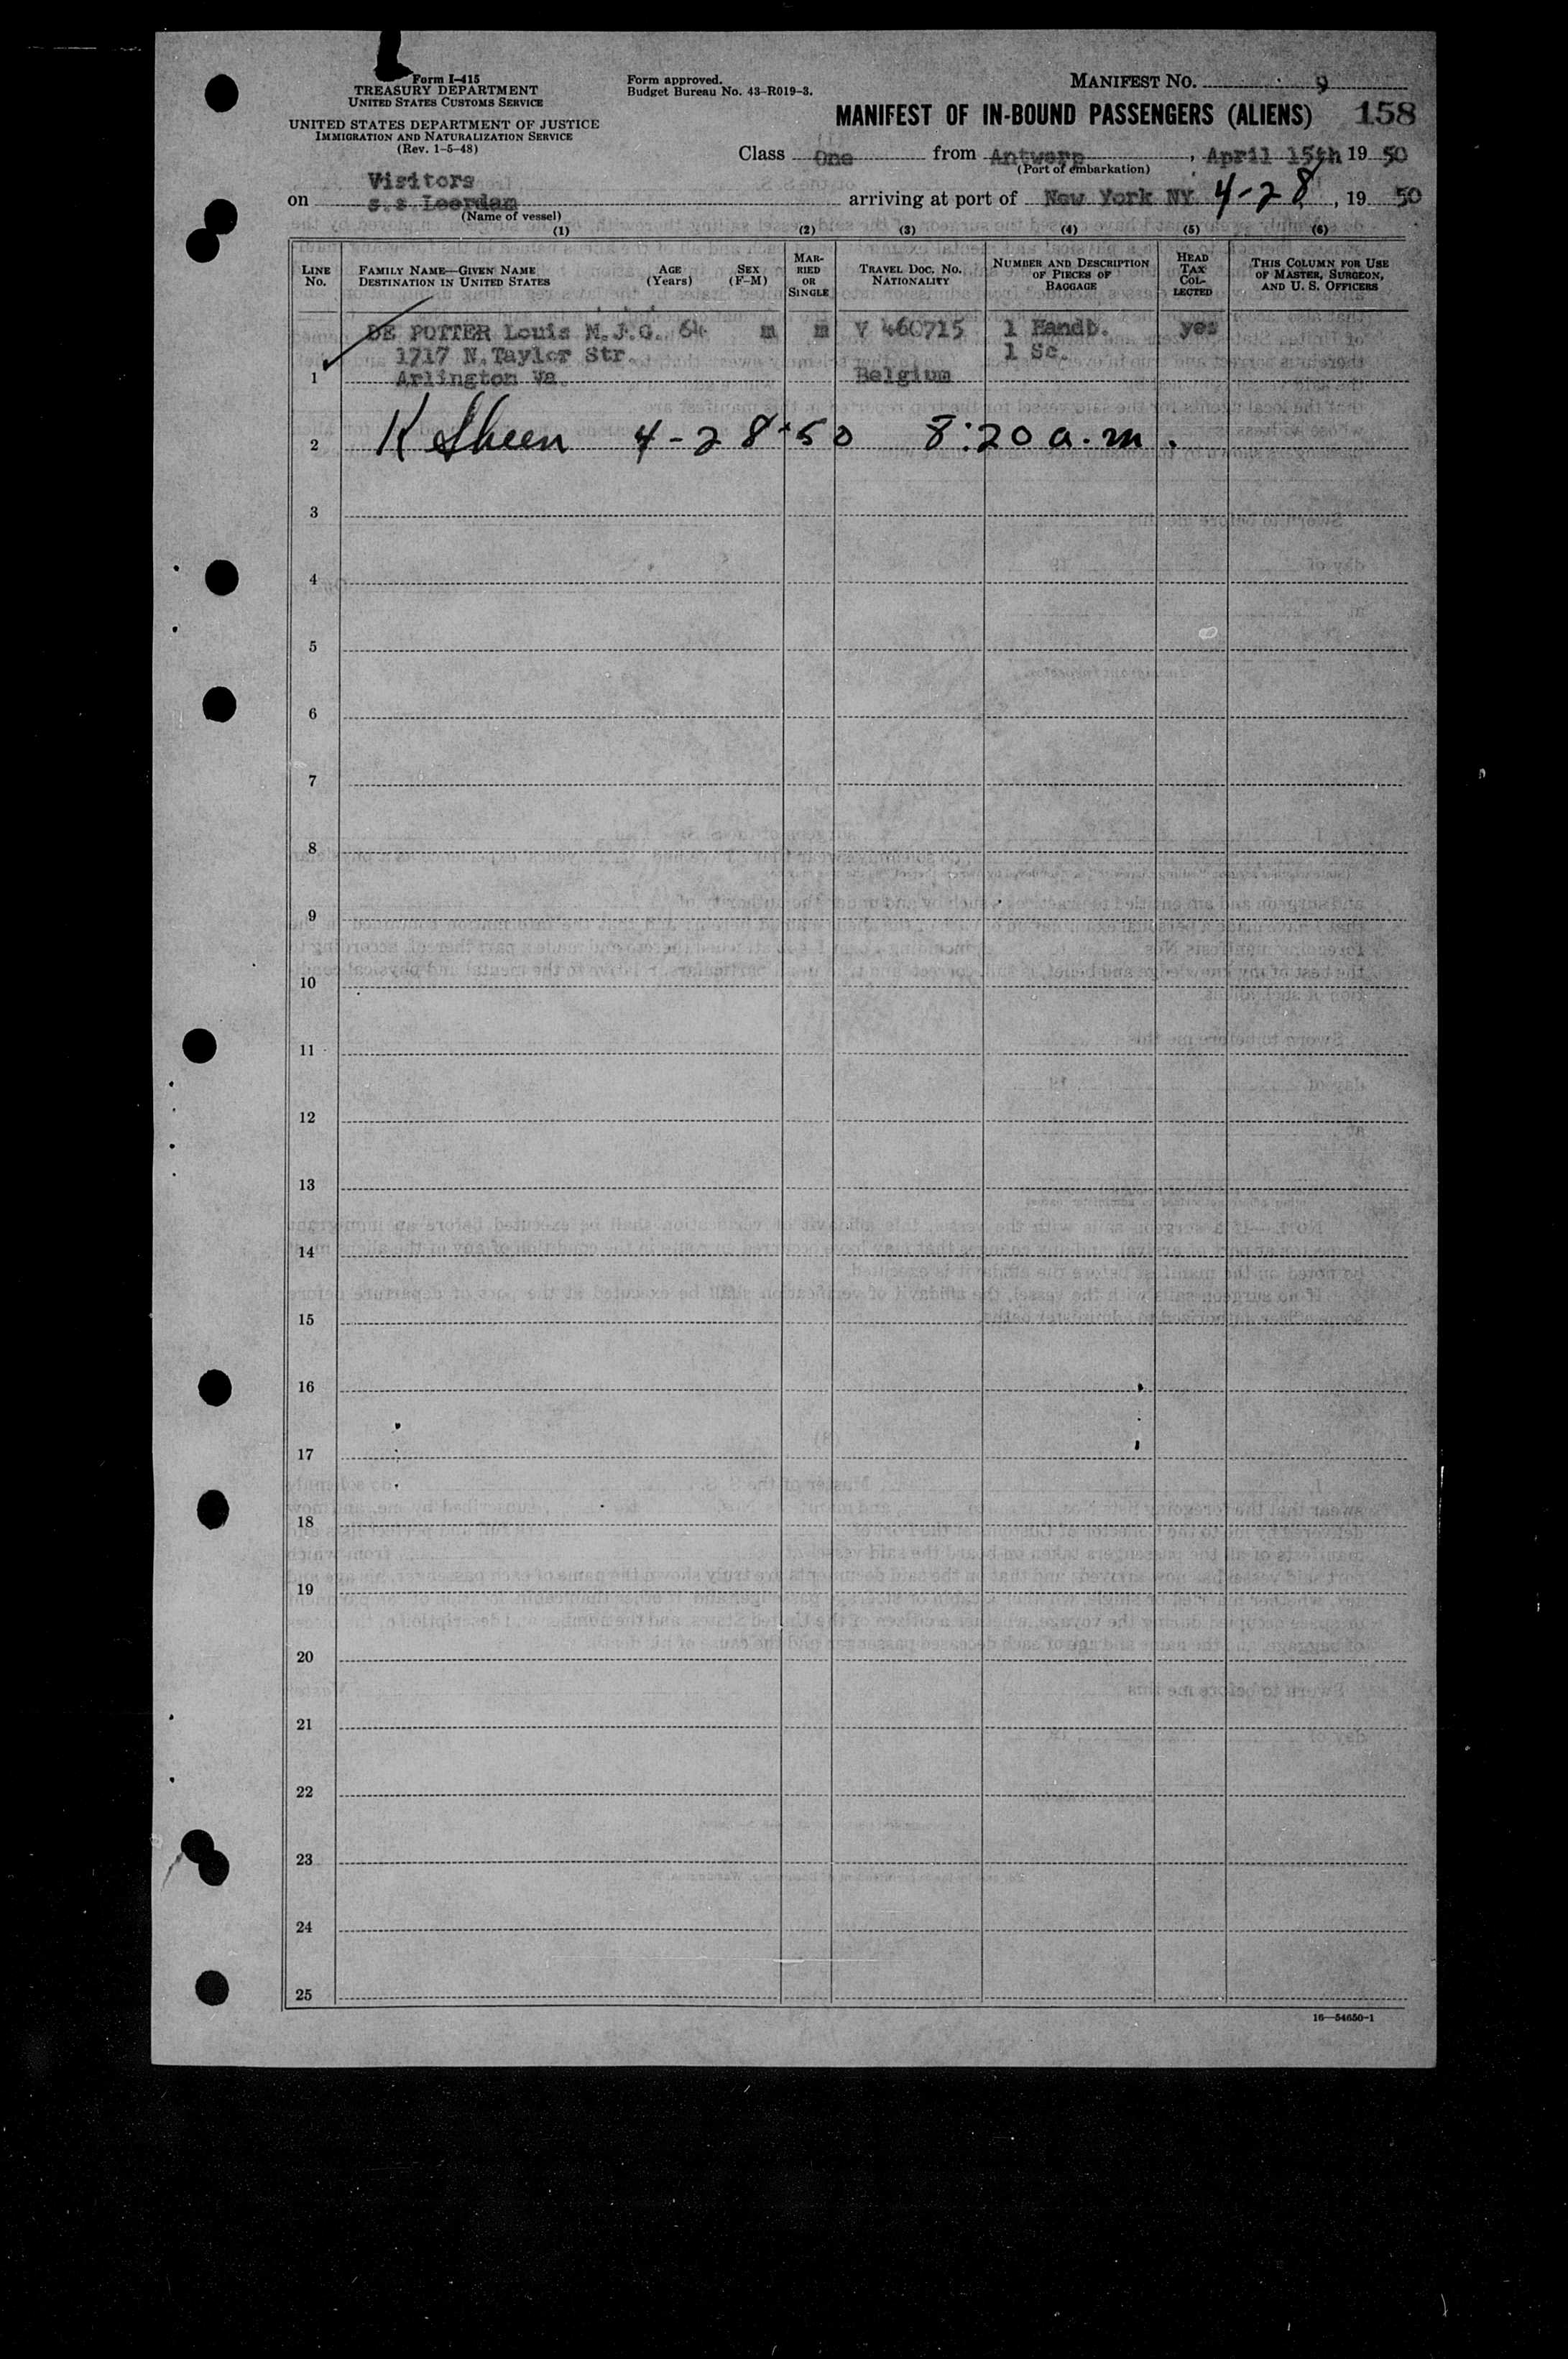 Form I-415
TREASURY DEPARTMENT
UNITED STATES CUSTOMS SERVICE
UNITED STATES DEPARTMENT OF JUSTICE
IMMIGRATION AND NATURALIZATION SERVICE
(Rev. 1-5-48)
Form approved.
Budget Bureau No. 43-R019-3.
MANIFEST NO. 9
MANIFEST OF IN-BOUND PASSENGERS (ALIENS) 158
Class One from Antwerp, April 15th 19 50
(Port of embarkation)
Visitors
on s.s. Leerdam arriving at port of New York NY 4-28, 19 50
(Name of vessel)
(1) (2) (3) (4) (5) (6)
LINE No. FAMILY NAME—GIVEN NAME DESTINATION IN UNITED STATES AGE (Years) SEX (F-M) MARRIED OR SINGLE TRAVEL DOC. NO. NATIONALITY NUMBER AND DESCRIPTION OF PIECES OF BAGGAGE HEAD TAX COLLECTED THIS COLUMN FOR USE OF MASTER, SURGEON, AND U. S. OFFICERS
DE POTTER Louis M.J.G. 64 m m V 460715 1 Handb. yes
1717 N.Taylor Str. 1 Sc.
1 Arlington Va. Belgium
2 K Sheen 4-28-50 8:20 a.m.
3
4
5
6
7
8
9
10
11
12
13
14
15
16
17
18
19
20
21
22
23
24
25
16—54650-1